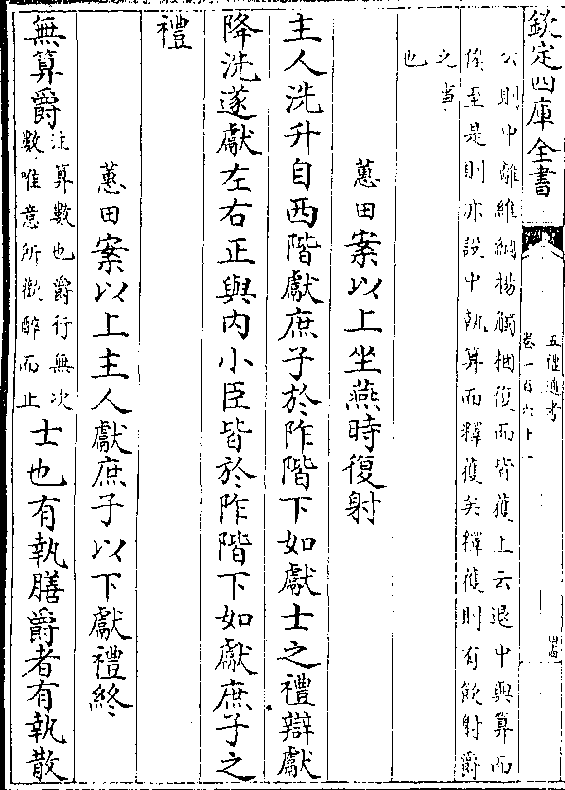 欽定四庫全書
五禮通考
卷一百六十一
公則中離維綱揚觸梱復而皆獲上云退中與算而
俟至是則亦設中執算而釋獲矣釋獲則有飲射爵
之事
也
蕙田案以上坐燕時復射
主人洗升自西階獻庶子於阼階下如獻士之禮辯獻
降洗遂獻左右正與内小臣皆於阼階下如獻庶子之
禮
蕙田案以上主人獻庶子以下獻禮終
無算爵
注算數也爵行無次
數唯意所勸醉而止
士也有執膳爵者有執散